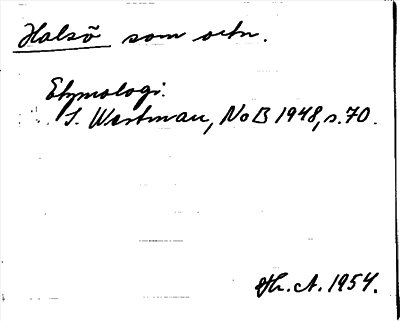 Halsö som ortn.
Etymologi:
I. Westman, NoB 1948, s. 70.
Hr. A. 1954.